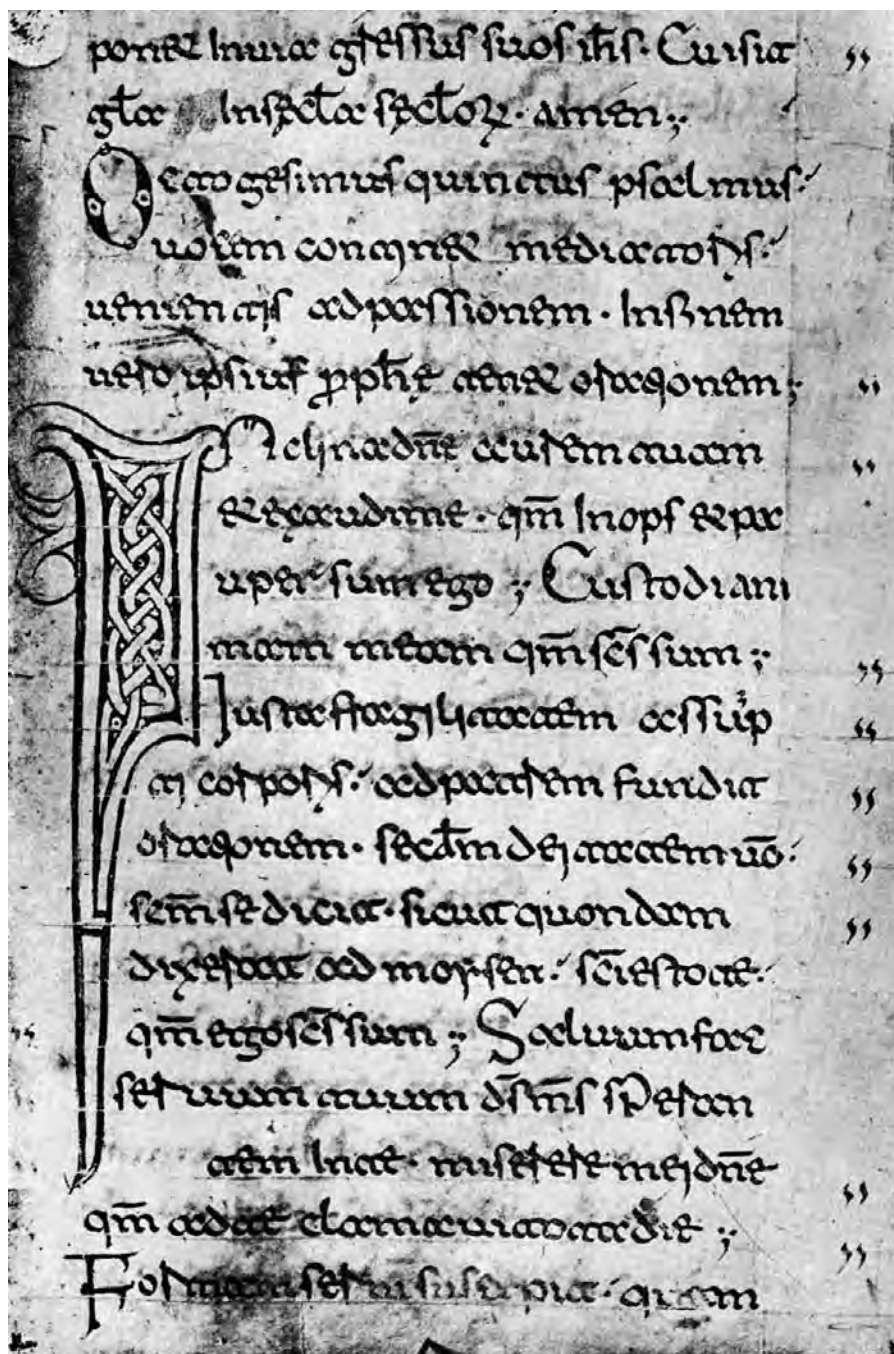 ponet In uia gressus suos ih̄s. Cui sit
gl̄a In secl̄a secl̄oꝝ. amen;
Octogesimus quinctus psalmus.
continet mediatoris.
uenientis ad passionem. In finem
uero ipsius ꝓph̄e tenet orationem;
Inclina dn̄e aurem tuam
et exaudi me. qm̄ Inops et pa
uper sum ego; Custodi ani
mam meam qm̄ sc̄s sum;
Iusta fragilitatem assūp
ti corporis. ad patrem fundit
orationem. secd̄m deitatem uō.
sc̄m se dicit. sicut quondam
dixerat ad moysen. sc̄i estote.
qm̄ ego sc̄s sum; Saluum fac
seruum tuum d̄s m̄s speran
tem In te. miserere mei dn̄e
qm̄ ad te clamaui tota die;
Formam serui suscepit.